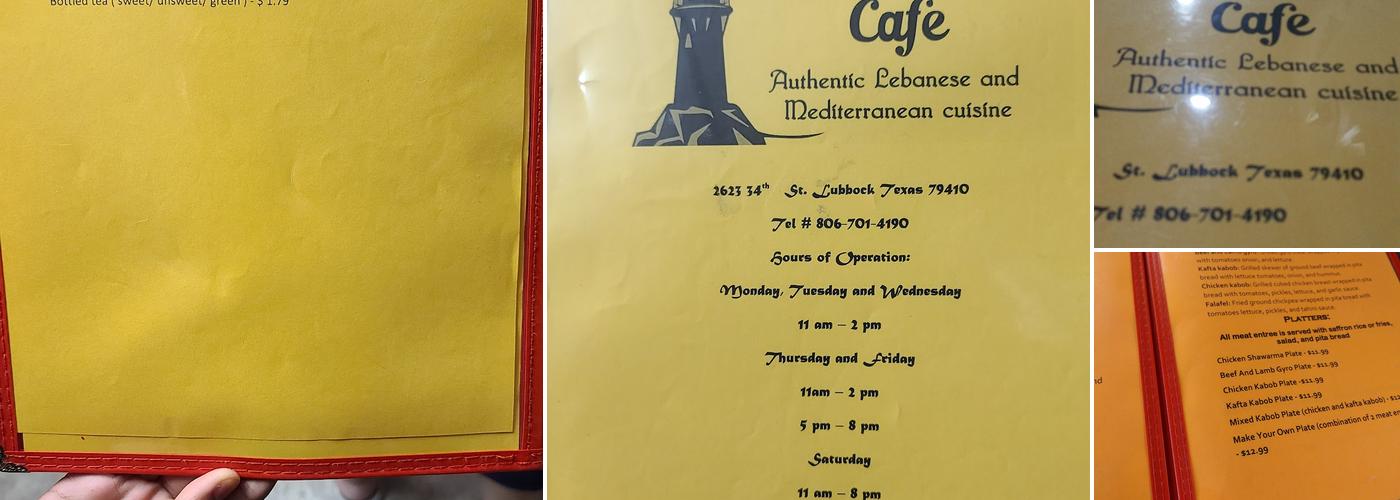 Bottled tea ( sweet/ unsweet/ green ) - $ 1.79
Cafe
Authentic Lebanese and
Mediterranean cuisine
2623 34th St. Lubbock Texas 79410
Tel # 806-701-4190
Hours of Operation:
Monday, Tuesday and Wednesday
11 am – 2 pm
Thursday and Friday
11am – 2 pm
5 pm – 8 pm
Saturday
11 am – 8 pm
Cafe
Authentic Lebanese and
Mediterranean cuisine
St. Lubbock Texas 79410
Tel # 806-701-4190
with tomatoes onion, and lettuce.
Kafta kabob: Grilled skewer of ground beef wrapped in pita
bread with lettuce tomatoes, onion, and hummus.
Chicken kabob: Grilled cubed chicken breast wrapped in pita
bread with tomatoes, pickles, lettuce, and garlic sauce.
Falafel: Fried ground chickpea wrapped in pita bread with
tomatoes lettuce, pickles, and tahini sauce.
Platters:
All meat entree is served with saffron rice or fries,
salad, and pita bread
Chicken Shawarma Plate - $11.99
Beef And Lamb Gyro Plate - $11.99
Chicken Kabob Plate -$11.99
Kafta Kabob Plate - $11.99
Mixed Kabob Plate (chicken and kafta kabob) - $12
Make Your Own Plate (combination of 2 meat en
- $12.99